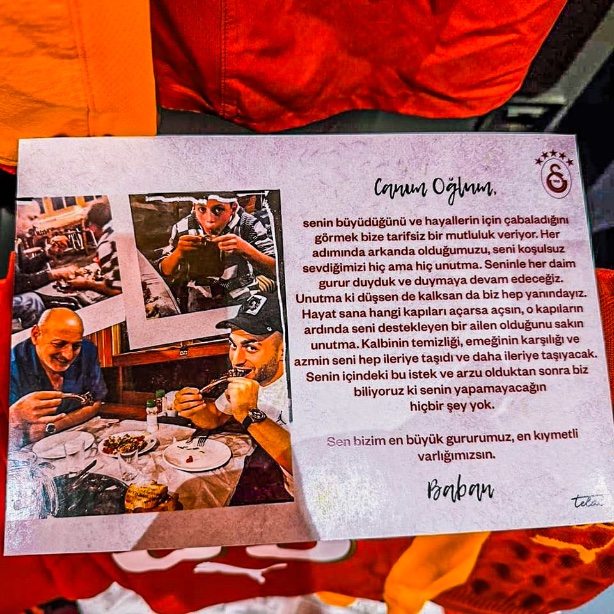 Canım Oğlum,
senin büyüdüğünü ve hayallerin için çabaladığını
görmek bize tarifsiz bir mutluluk veriyor. Her
adımında arkanda olduğumuzu, seni koşulsuz
sevdiğimizi hiç ama hiç unutma. Seninle her daim
gurur duyduk ve duymaya devam edeceğiz.
Unutma ki düşsen de kalksan da biz hep yanındayız.
Hayat sana hangi kapıları açarsa açsın, o kapıların
ardında seni destekleyen bir ailen olduğunu sakın
unutma. Kalbinin temizliği, emeğinin karşılığı ve
azmin seni hep ileriye taşıdı ve daha ileriye taşıyacak.
Senin içindeki bu istek ve arzu olduktan sonra biz
biliyoruz ki senin yapamayacağın
hiçbir şey yok.
Sen bizim en büyük gururumuz, en kıymetli
varlığımızsın.
Baban